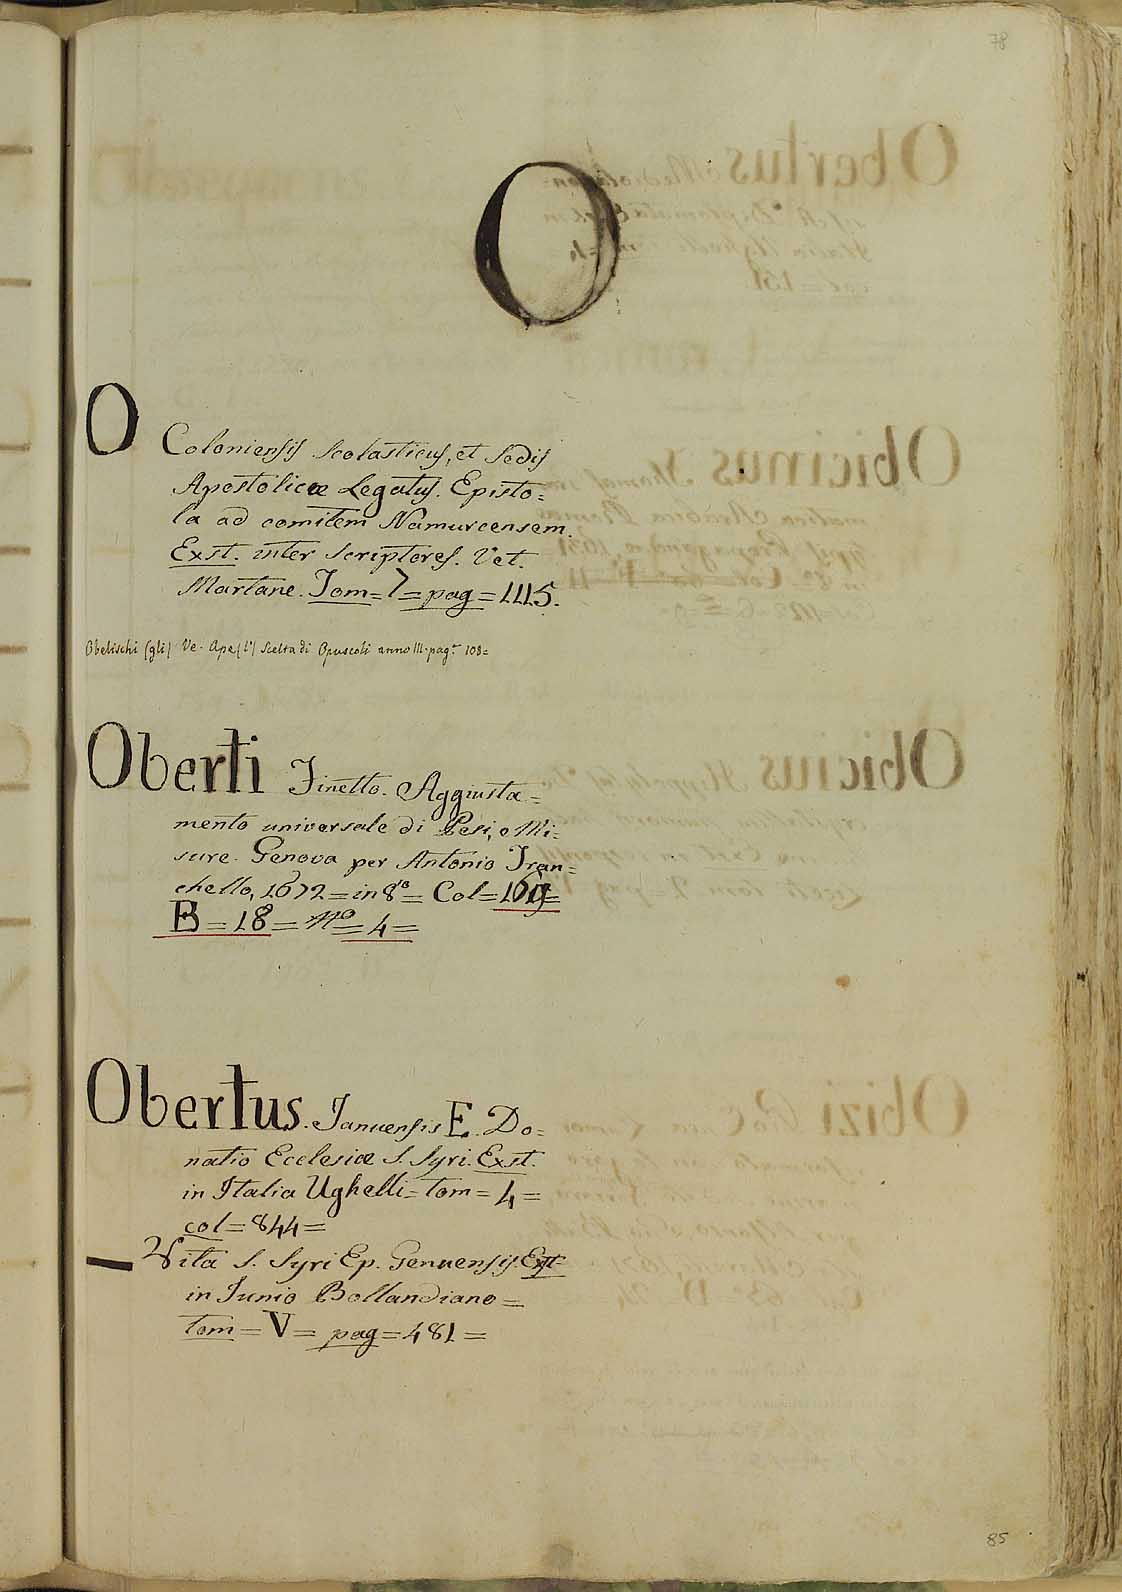 78
O
O Coloniensis Scolasticus, et Sedis
Apostolicæ Legatus. Episto=
la ad comitem Namurcensem.
Exst. inter Scriptores. Vet.
Martane. Tom=7=pag=1115.
Obelischi (gli) Ve. Ape (l') Scelta di Opuscoli anno III. pag.ª 108=
Oberti Ginetto. Aggiusta=
mento universale di Pesi, e Mi=
sure. Genova per Antonio Fran=
chello, 1672=in 8º=Col=169=
B=18=Nº=4=
Obertus. Januensis E. Do=
natio Ecclesiæ S. Syri. Exst.
in Italia Ughelli=tom=4=
col=844=
— Vita S. Syri Ep. Genuensis. Exst=
in Junio Bollandiano=
tom=V=pag=481=
85